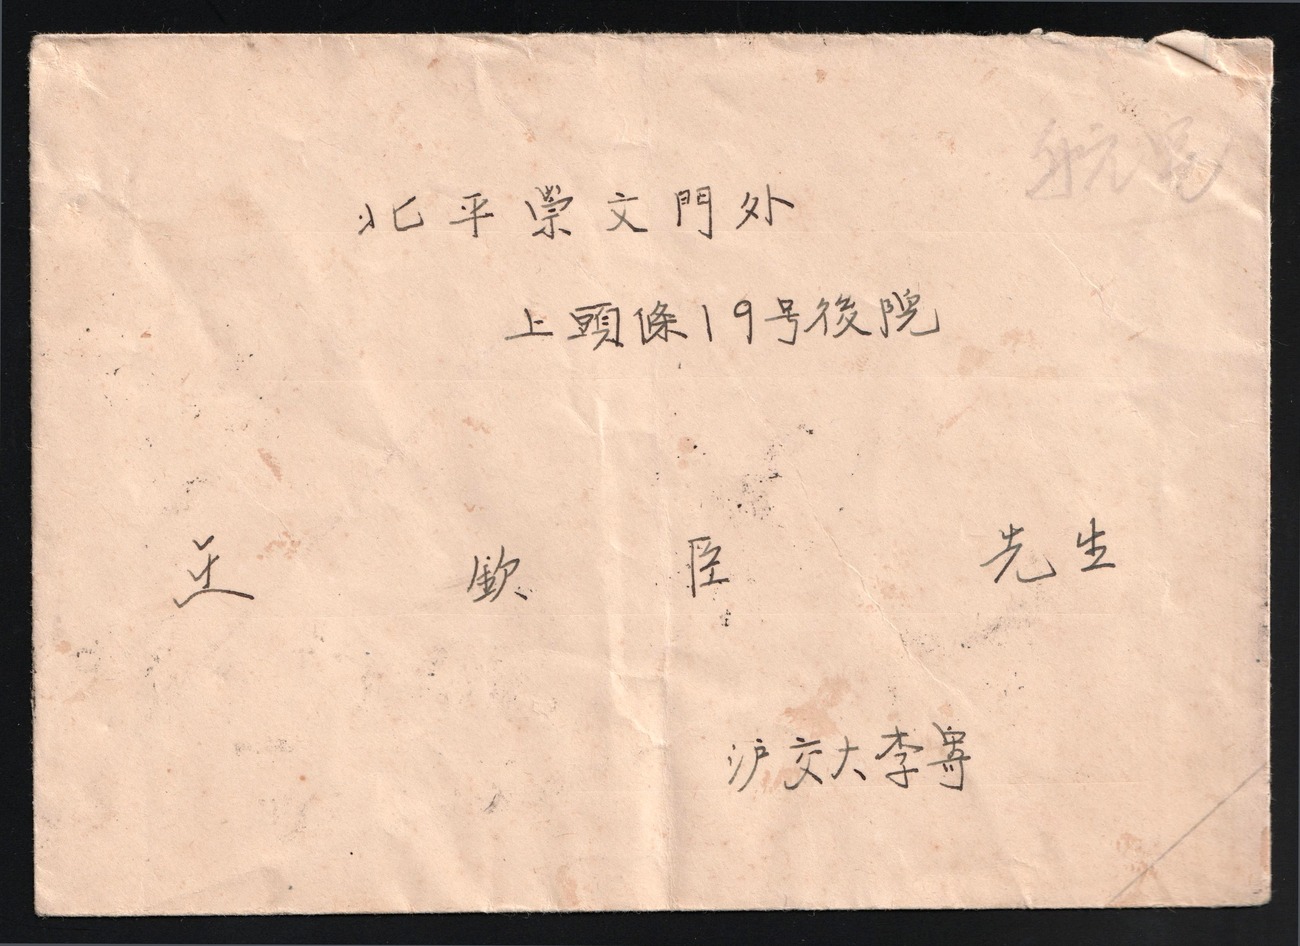 航
北平崇文門外
上頭條19号後院
欽臣 先生
沪交大李寄